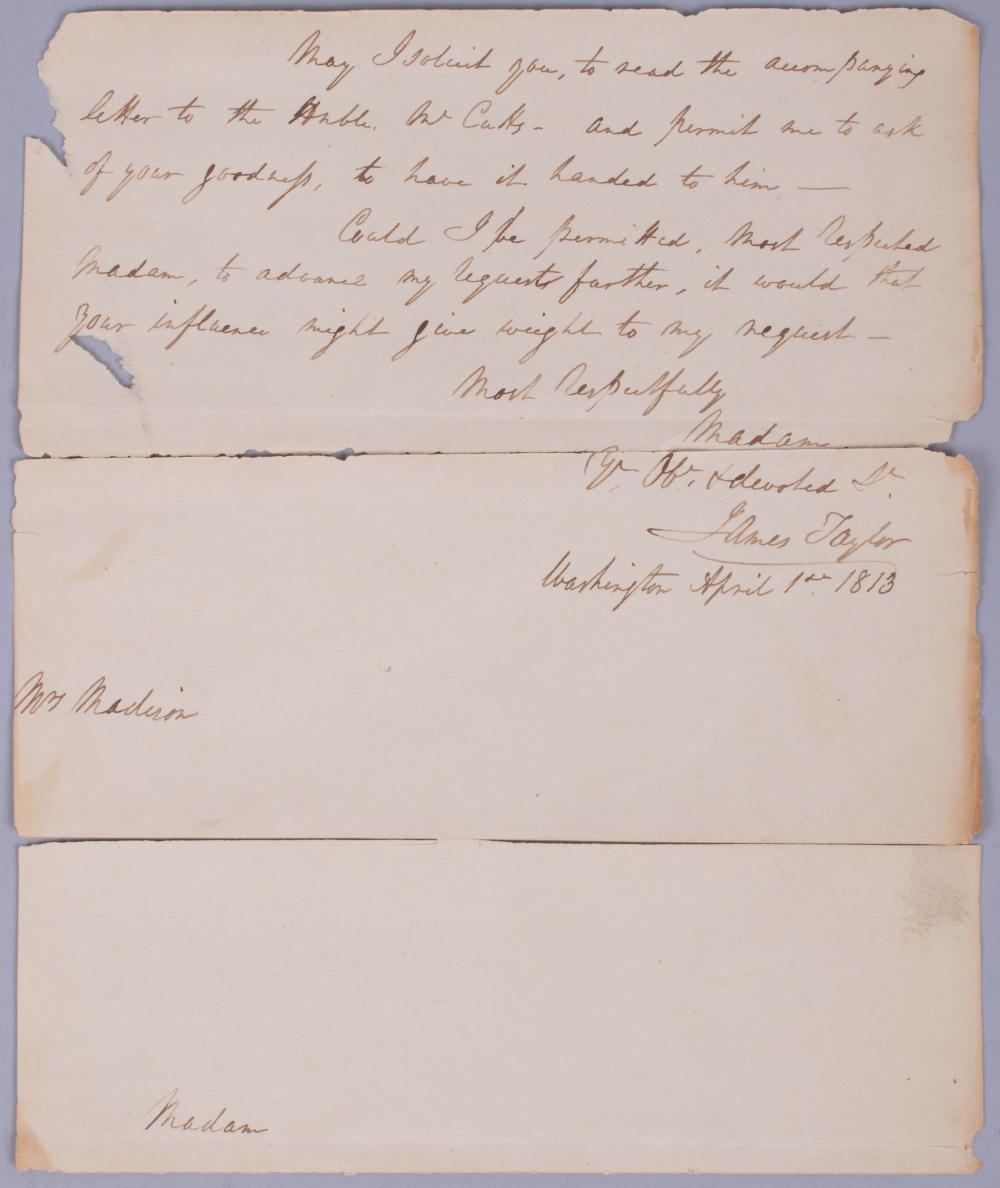 May I solicit you, to read the accompanying
letter to the Honble. Mr Cutts - and permit me to ask
of your goodness, to have it handed to him —
Could I be permitted, Most Respected
Madam, to advance my requests farther, it would that
your influence might give weight to my request —
Most Respectfully
Madam
Yr. Obt. & devoted St.
James Taylor
Washington April 1st 1813
Mrs Madison
Madam